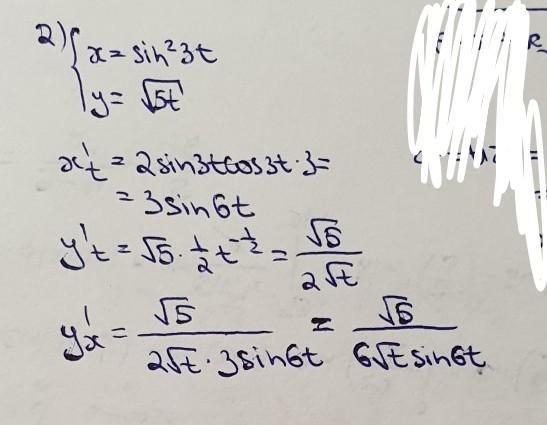 2) { x = sin²3t
y = √5t
x't = 2sin3tcos3t·3=
= 3sin6t
y't = √5 · 1/2 t^(-1/2) = √5 / 2√t
y'x = √5 / 2√t · 3sin6t = √5 / 6√t sin6t